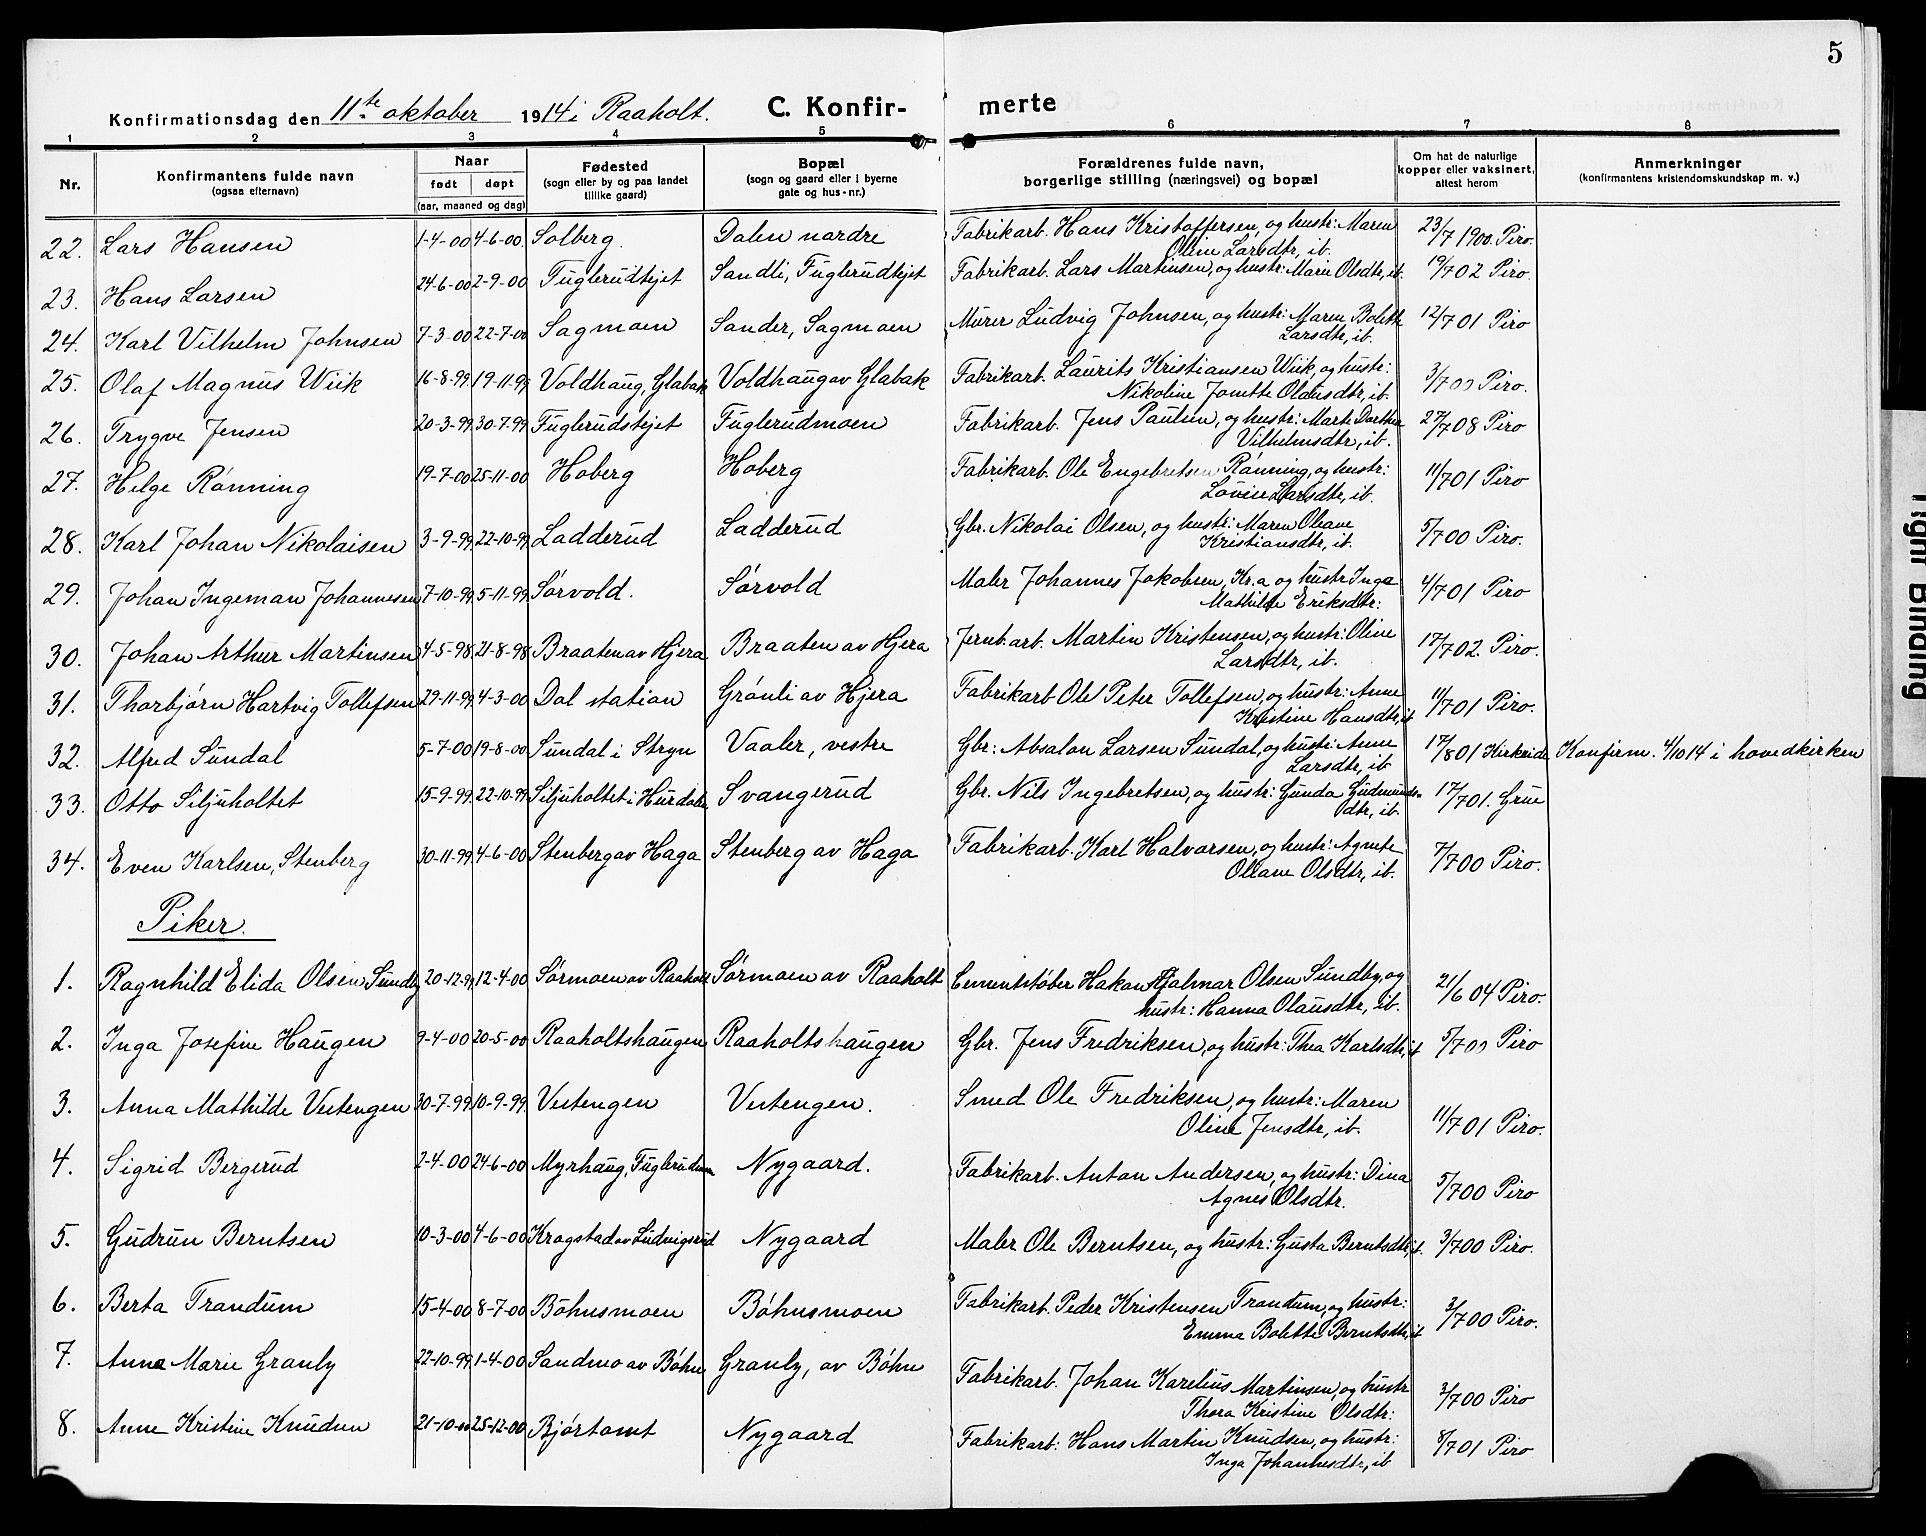 5
Konfirmationsdag den 11te oktober 1914 i Raaholt. C. Konfirmerte
1 2 3 4 5 6 7 8
Nr. Konfirmantens fulde navn (ogsaa efternavn) Naar født døpt (aar, maaned og dag) Fødested (sogn eller by og paa landet tillike gaard) Bopæl (sogn og gaard eller i byerne gate og hus-nr.) Forældrenes fulde navn, borgerlige stilling (næringsvei) og bopæl Om hat de naturlige kopper eller vaksinert, attest herom Anmerkninger (konfirmantens kristendomskundskap m. v.)
22. Lars Hansen 1-4-00 4-6-00. Solberg. Dalen nordre Fabrikarb. Hans Kristoffersen, og hustr: Maren Oline Larsdtr, ib. 23/7 1900. Piro.
23. Hans Larsen 24-6-00 2-9-00 Fuglerudejet Sandli, Fuglerudejet Fabrikarb. Lars Martinsen, og hustr: Marie Olsdtr, ib. 19/7 02 Piro.
24. Karl Vilhelm Johnsen 7-3-00 22-7-00 Sagmoen Sander, Sagmoen Murer Ludvig Johnsen, og hustr: Maren Bolette Larsdtr, ib. 12/7 01 Piro
25. Olaf Magnus Wiik 16-8-99 19-11-99 Voldhaug, Glabak Voldhaug av Glabak Fabrikarb. Laurits Kristiansen Wiik, og hustr: Nikoline Jonette Olausdtr, ib. 3/7 00 Piro.
26. Trygve Jensen 20-3-99 30-7-99 Fuglerudsejet Fuglerudmoen Fabrikarb. Jens Paulsen, og hustr: Marte Dorthea Vilhelmsdtr, ib. 27/7 08 Piro
27. Helge Rønning 19-7-00 25-11-00 Hoberg Hoberg Fabrikarb. Ole Engebretsen Rønning, og hustr: Lovise Larsdtr, ib. 11/7 01 Piro
28. Karl Johan Nikolaisen 3-9-99 22-10-99 Ladderud Ladderud Gbr. Nikolai Olsen, og hustr: Maren Oleane Kristiansdtr, ib. 5/7 00 Piro.
29. Johan Ingeman Johannesen 7-10-99 5-11-99 Sørvold. Sørvold Maler Johannes Jakobsen, Kr.a, og hustr Inga Mathilde Eriksdtr: 4/7 01 Piro
30. Johan Arthur Martinsen 4-5-98 21-8-98 Braaten av Hjera Braaten av Hjera Jernb. arb. Martin Kristensen, og hustr: Oline Larsdtr, ib. 17/7 02. Piro.
31. Thorbjørn Hartvig Tollefsen 29-11-99 4-3-00 Dal station Grønli av Hjera Fabrikarb Ole Peter Tollefsen, og hustr: Anne Kristine Hansdtr, ib 11/7 01 Piro.
32. Alfred Sundal 5-7-00 19-8-00 Sundal i Stryn Vaaler, vestre Gbr: Absalon Larsen Sundal, og hustr: Anne Larsdtr, ib 17/8 01 Kirkeide Konfirm. 4/10 14 i hovedkirken
33. Otto Siljuholtet 15-9-99 22-10-99 Siljuholtet i Hurdalen Svangerud Gbr. Nils Ingebretsen, og hustr: Gunda Gudmundsdtr, ib. 17/7 01. Grue
34. Even Karlsen, Stenberg 30-11-99 4-6-00 Stenberg av Haga Stenberg av Haga Fabrikarb. Karl Halvorsen, og hustr: Agnete Oleane Olsdtr, ib. 7/7 00 Piro.
Piker.
1. Ragnhild Elida Olsen Sundby 20-12-99 12-4-00 Sørmoen av Raaholt Sørmoen av Raaholt Cementstøber Hakon Hjalmar Olsen Sundby, og hustr: Hanna Olausdtr, ib. 21/6 04 Piro.
2. Inga Josefine Haugen 9-4-00 20-5-00 Raaholtshaugen Raaholtshaugen Gbr. Jens Fredriksen, og hustr: Thea Karlsdtr, ib 5/7 00 Piro
3. Anna Mathilde Vestengen 30-7-99 10-9-99 Vestengen Vestengen. Smed Ole Fredriksen, og hustr: Maren Oline Jensdtr, ib. 11/7 01 Piro.
4. Sigrid Bergerud 2-4-00 24-6-00 Myrhaug, Fuglerudm Nygaard. Fabrikarb. Anton Andersen, og hustr: Dina Agnes Olsdtr. 5/7 00 Piro
5. Gudrun Berntsen 10-3-00 4-6-00 Krogstad av Ludvigsrud Nygaard Maler Ole Berntsen, og hustr: Gusta Berntsdtr, ib. 3/7 00 Piro.
6. Berta Trandum 15-4-00 8-7-00 Bøhnsmoen Bøhnsmoen Fabrikarb. Peder Kristensen Trandum, og hustr: Emma Bolette Berntsdtr, ib 3/7 00 Piro.
7. Anna Marie Granly 22-10-99 1-4-00 Sandmo av Bøhn Granly, av Bøhn Fabrikarb. Johan Karelius Martinsen, og hustr Thora Kristine Olsdtr: 3/7 00 Piro
8. Anne Kristine Knudsen 21-10-00 25-12-00 Bjørtomt Nygaard Fabrikarb: Hans Martin Knudsen, og hustr: Inga Johannesdtr, ib 8/7 01 Piro
Tight Binding